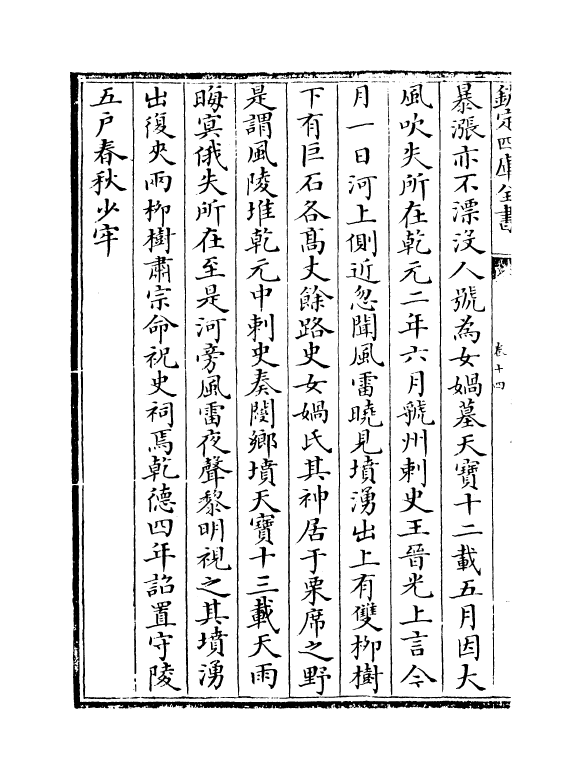 欽定四庫全書
卷十四
暴漲亦不漂没人號為女媧墓天寶十二載五月因大
風吹失所在乾元二年六月虢州刺史王晉光上言今
月一日河上側近忽聞風雷曉見墳湧出上有雙柳樹
下有巨石各髙丈餘路史女媧氏其神居于栗席之野
是謂風陵堆乾元中刺史奏閿鄉墳天寶十三載天雨
晦㝠俄失所在至是河旁風雷夜聲黎明視之其墳湧
出復夾兩柳樹肅宗命祝史祠焉乾德四年詔置守陵
五户春秋少牢